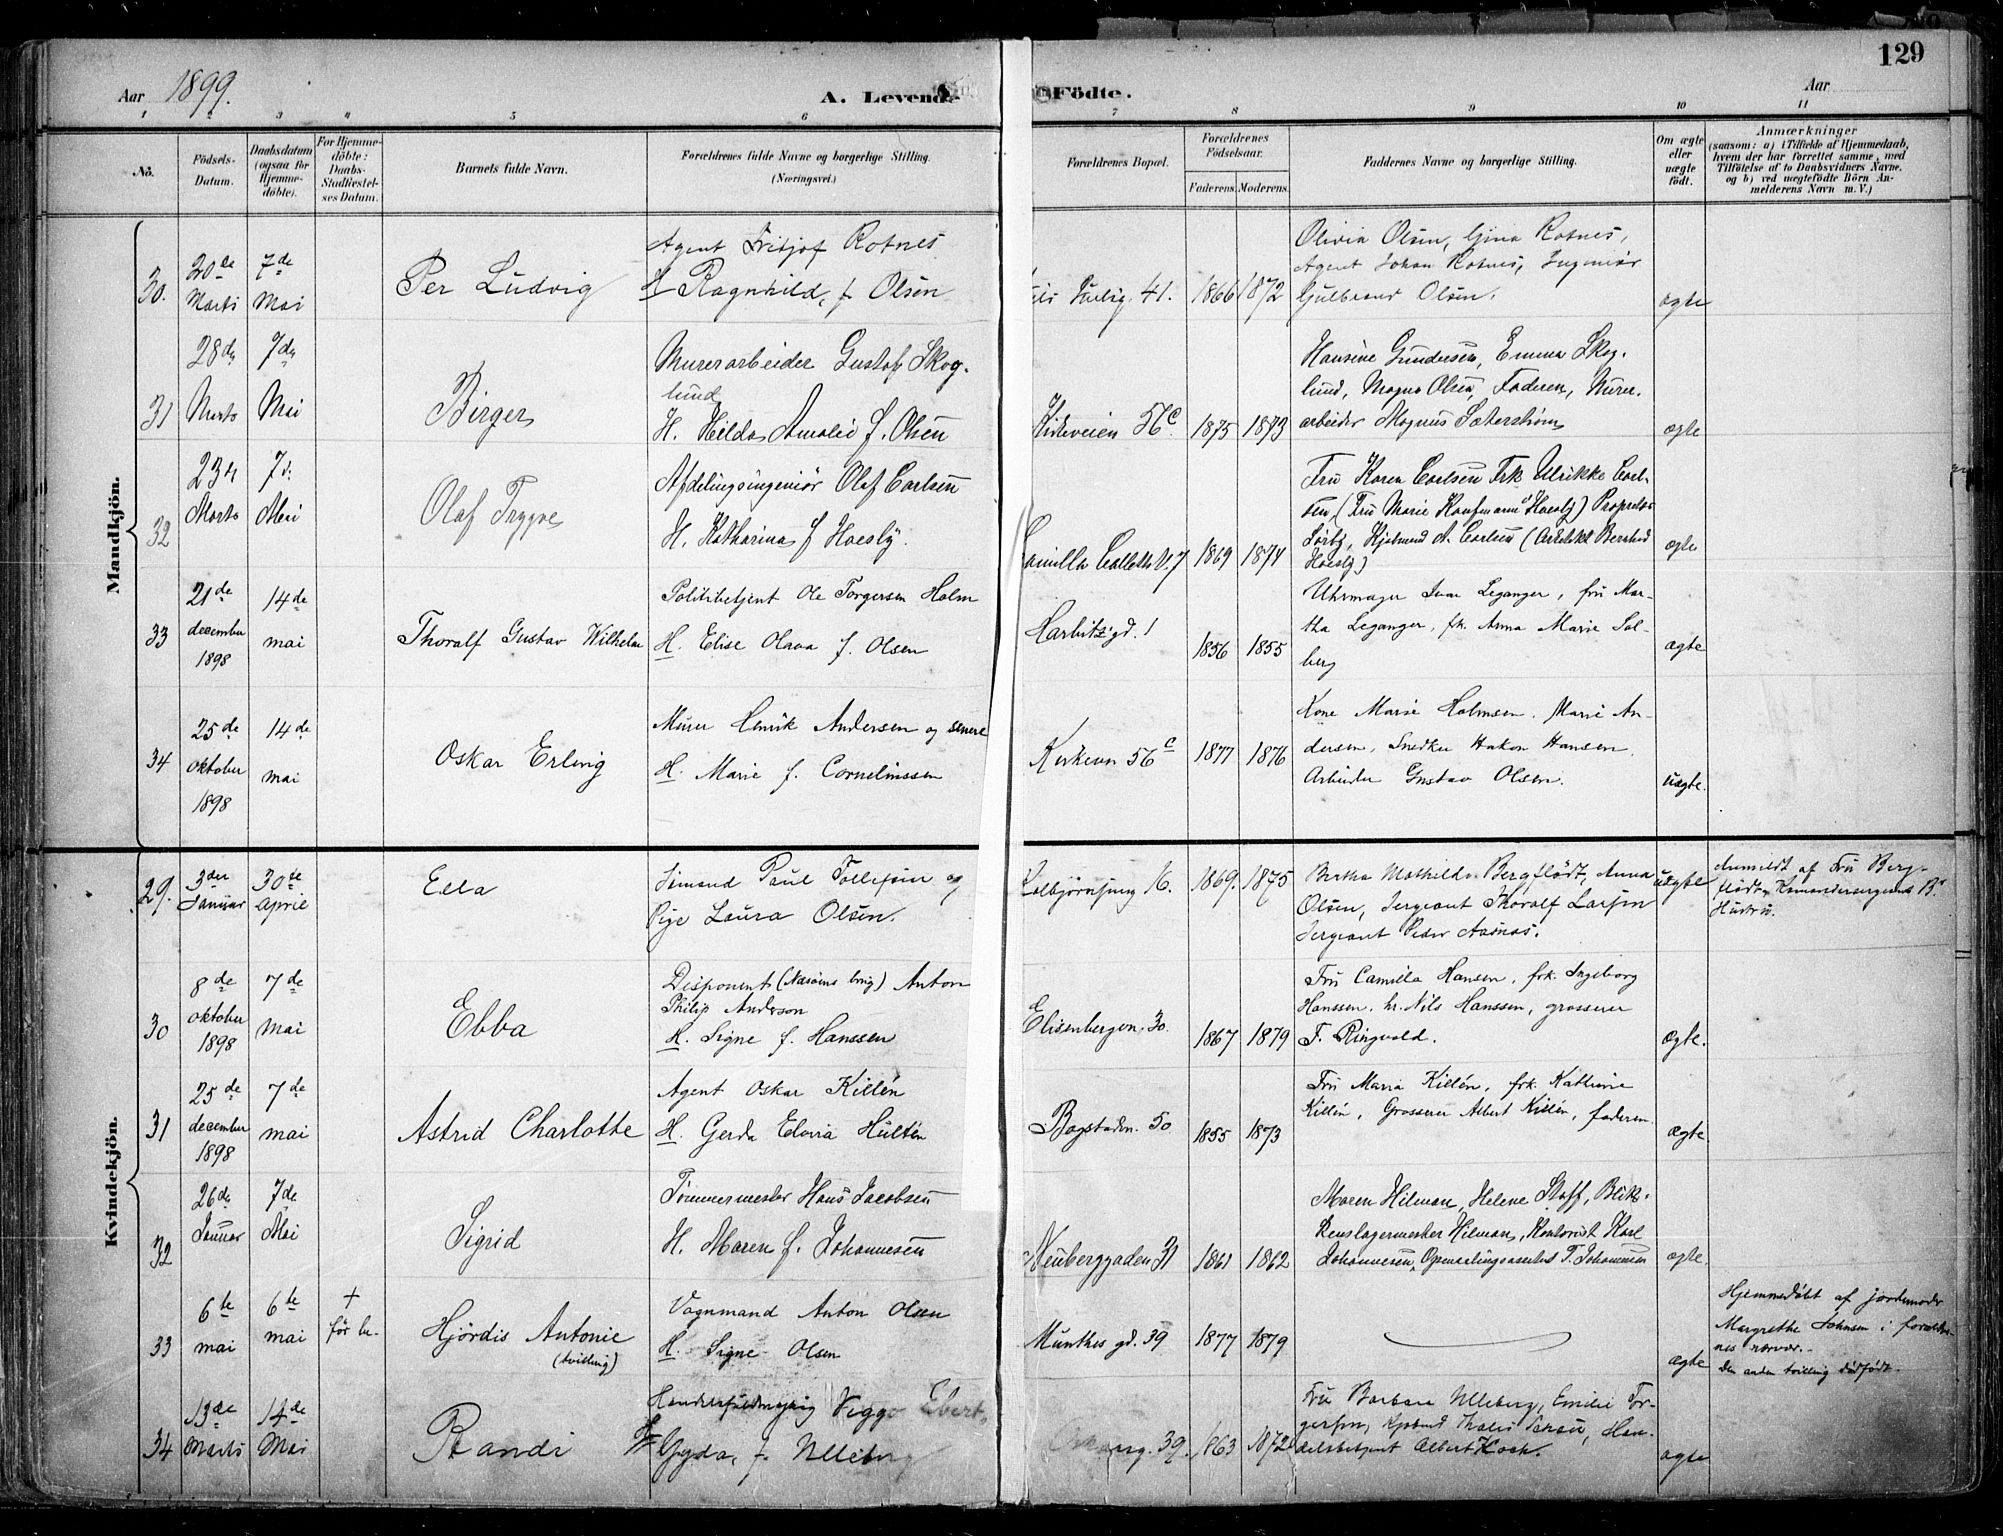 129
Aar 1899.
A. Levende Födte.
Aar
1 2 3 4 5 6 7 8 9 10 11
No.
Födsels-
Datum.
Daabsdatum
(ogsaa for
Hjemme-
döbte).
For Hjemme-
döbte:
Daabs-
Stadfæstel-
ses Datum.
Barnets fulde Navn.
Forældrenes fulde Navne og borgerlige Stilling.
(Næringsvei.)
Forældrenes Bopæl.
Forældrenes
Födselsaar.
Faderens.
Moderens.
Faddernes Navne og borgerlige Stilling.
Om ægte
eller
uægte
født.
Anmærkninger
(saasom: a) i Tilfælde af Hjemmedaab,
hvem der har forrettet samme, med
Tilföielse af to Daabsvidners Navne,
og b) ved uægtefödte Börn An-
melderens Navn m. V.)
Mandkjön.
30.
20de
Marts
7de
Mai
Per Ludvig
Agent Fritjof Rotnes
H. Ragnhild, f. Olsen
41.
1866
1872
Olivia Olsen, Gina Rotnes,
Agent Johan Rotnes, Ingeniør
Gulbrand Olsen.
ægte
31
28de
Marts
7de
Mai
Birger
Murerarbeider Gustaf Skog-
lund
H. Hilda Amalie f. Olsen
Kirkeveien 56c.
1875
1873
Hansine Gundersen, Emma Skog-
lund, Magna Olsen, Faderen, Murer-
arbeider Magnus Sæterstrøm
ægte
32
23de
Marts
7de
Mai
Olaf Trygve
Afdelingsingeniør Olaf Carlsen
H. Katharina f Hoesly.
Camilla Colletts V. 7
1869
1874
Fru Karen Carlsen Frk Ulrikke Carl-
sen, (Fru Marie Kaufmann f Hoesly) Proprietær
Sørby, Kjøbmand A. Carlsen (Arkitekt Bernhard
Hoesly)
ægte
33
21de
december
1898
14de
mai
Thoralf Gustav Wilhelm
Politibetjent Ole Torgersen Holm
H. Elise Olava f. Olsen
Harbitz' gd. 1
1856
1855
Uhrmager Ivar Leganger, fru Mar-
tha Leganger, frk. Anna Marie Sol-
berg
ægte
34
25de
oktober
1898
14de
mai
Oskar Erling
Murer Henrik Andersen og senere
H. Marie f. Corneliussen
Kirkevn 56c
1877
1876
Kone Marie Holmsen, Marie An-
dersen, Snedker Hakon Hansen
Arbeider Gustav Olsen.
uægte.
Kvindekjön.
29.
3die
Januar
30te
April
Ella
Sømand Paul Tollefsen og
Pige Laura Olsen.
16.
1869.
1875
Bertha Mathilde Bergflødt, Anna
Olsen, Sergeant Thoralf Larsen
Sergeant Peder Aasnæs.
uægte
Anmeldt af Fru Berg-
flødt, Kommandersergeant B's
Hustru.
30
8de
oktober
1898
7de
mai
Ebba
Disponent (Næsøens brug) Anton
Philip Anderson
H. Signe f. Hanssen
Elisenbergvn. 30
1867
1879
Fru Camilla Hansen, frk. Ingeborg
Hanssen, hr. Nils Hanssen, grosserer
F. Ringvold.
ægte.
31
25de
december
1898
7de
mai
Astrid Charlotte
Agent Oskar Killén
H. Gerda Elvira Hultén
Bogstadvn. 50
1855
1873
Fru Maria Killén, frk. Kathrine
Killén, Grosserer Albert Killén, faderen
ægte.
32
26de
Januar
7de
Mai
Sigrid
Tømmermester Hans Jacobsen
H. Maren f. Johannesen
Neuberggaden 31
1861
1862
Maren Hilman, Helene Staff, Blik-
kenslagermester Hilman, Kontorist Karl
Johannesen, Opmaalingsassistent T. Johannesen
ægte.
33
6te
mai
6te
mai
+
før be-
Hjördis Antonie
(tvilling)
Vognmand Anton Olsen
H. Signe Olsen
Munthes gd. 39
1877
1879
ægte
Hjemmedöbt af jordemoder
Margrethe Johnsen i forældre-
nes nærvær.
Den anden tvilling dödfödt.
34
13de
Marts
14de
Mai
Randi
Handelsfuldmægtig Viggo Ebert,
H. Gyda, f. Ulleberg
39.
1863
1872
Fru Barbara Ulleberg, Emilie Tor-
gersen, Kjøbmd Thales, Han-
delsbetjent Albert Koch.
ægte